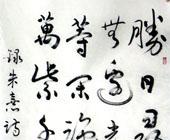 勝日尋
無邊光
等閒識
萬紫千
録朱熹詩